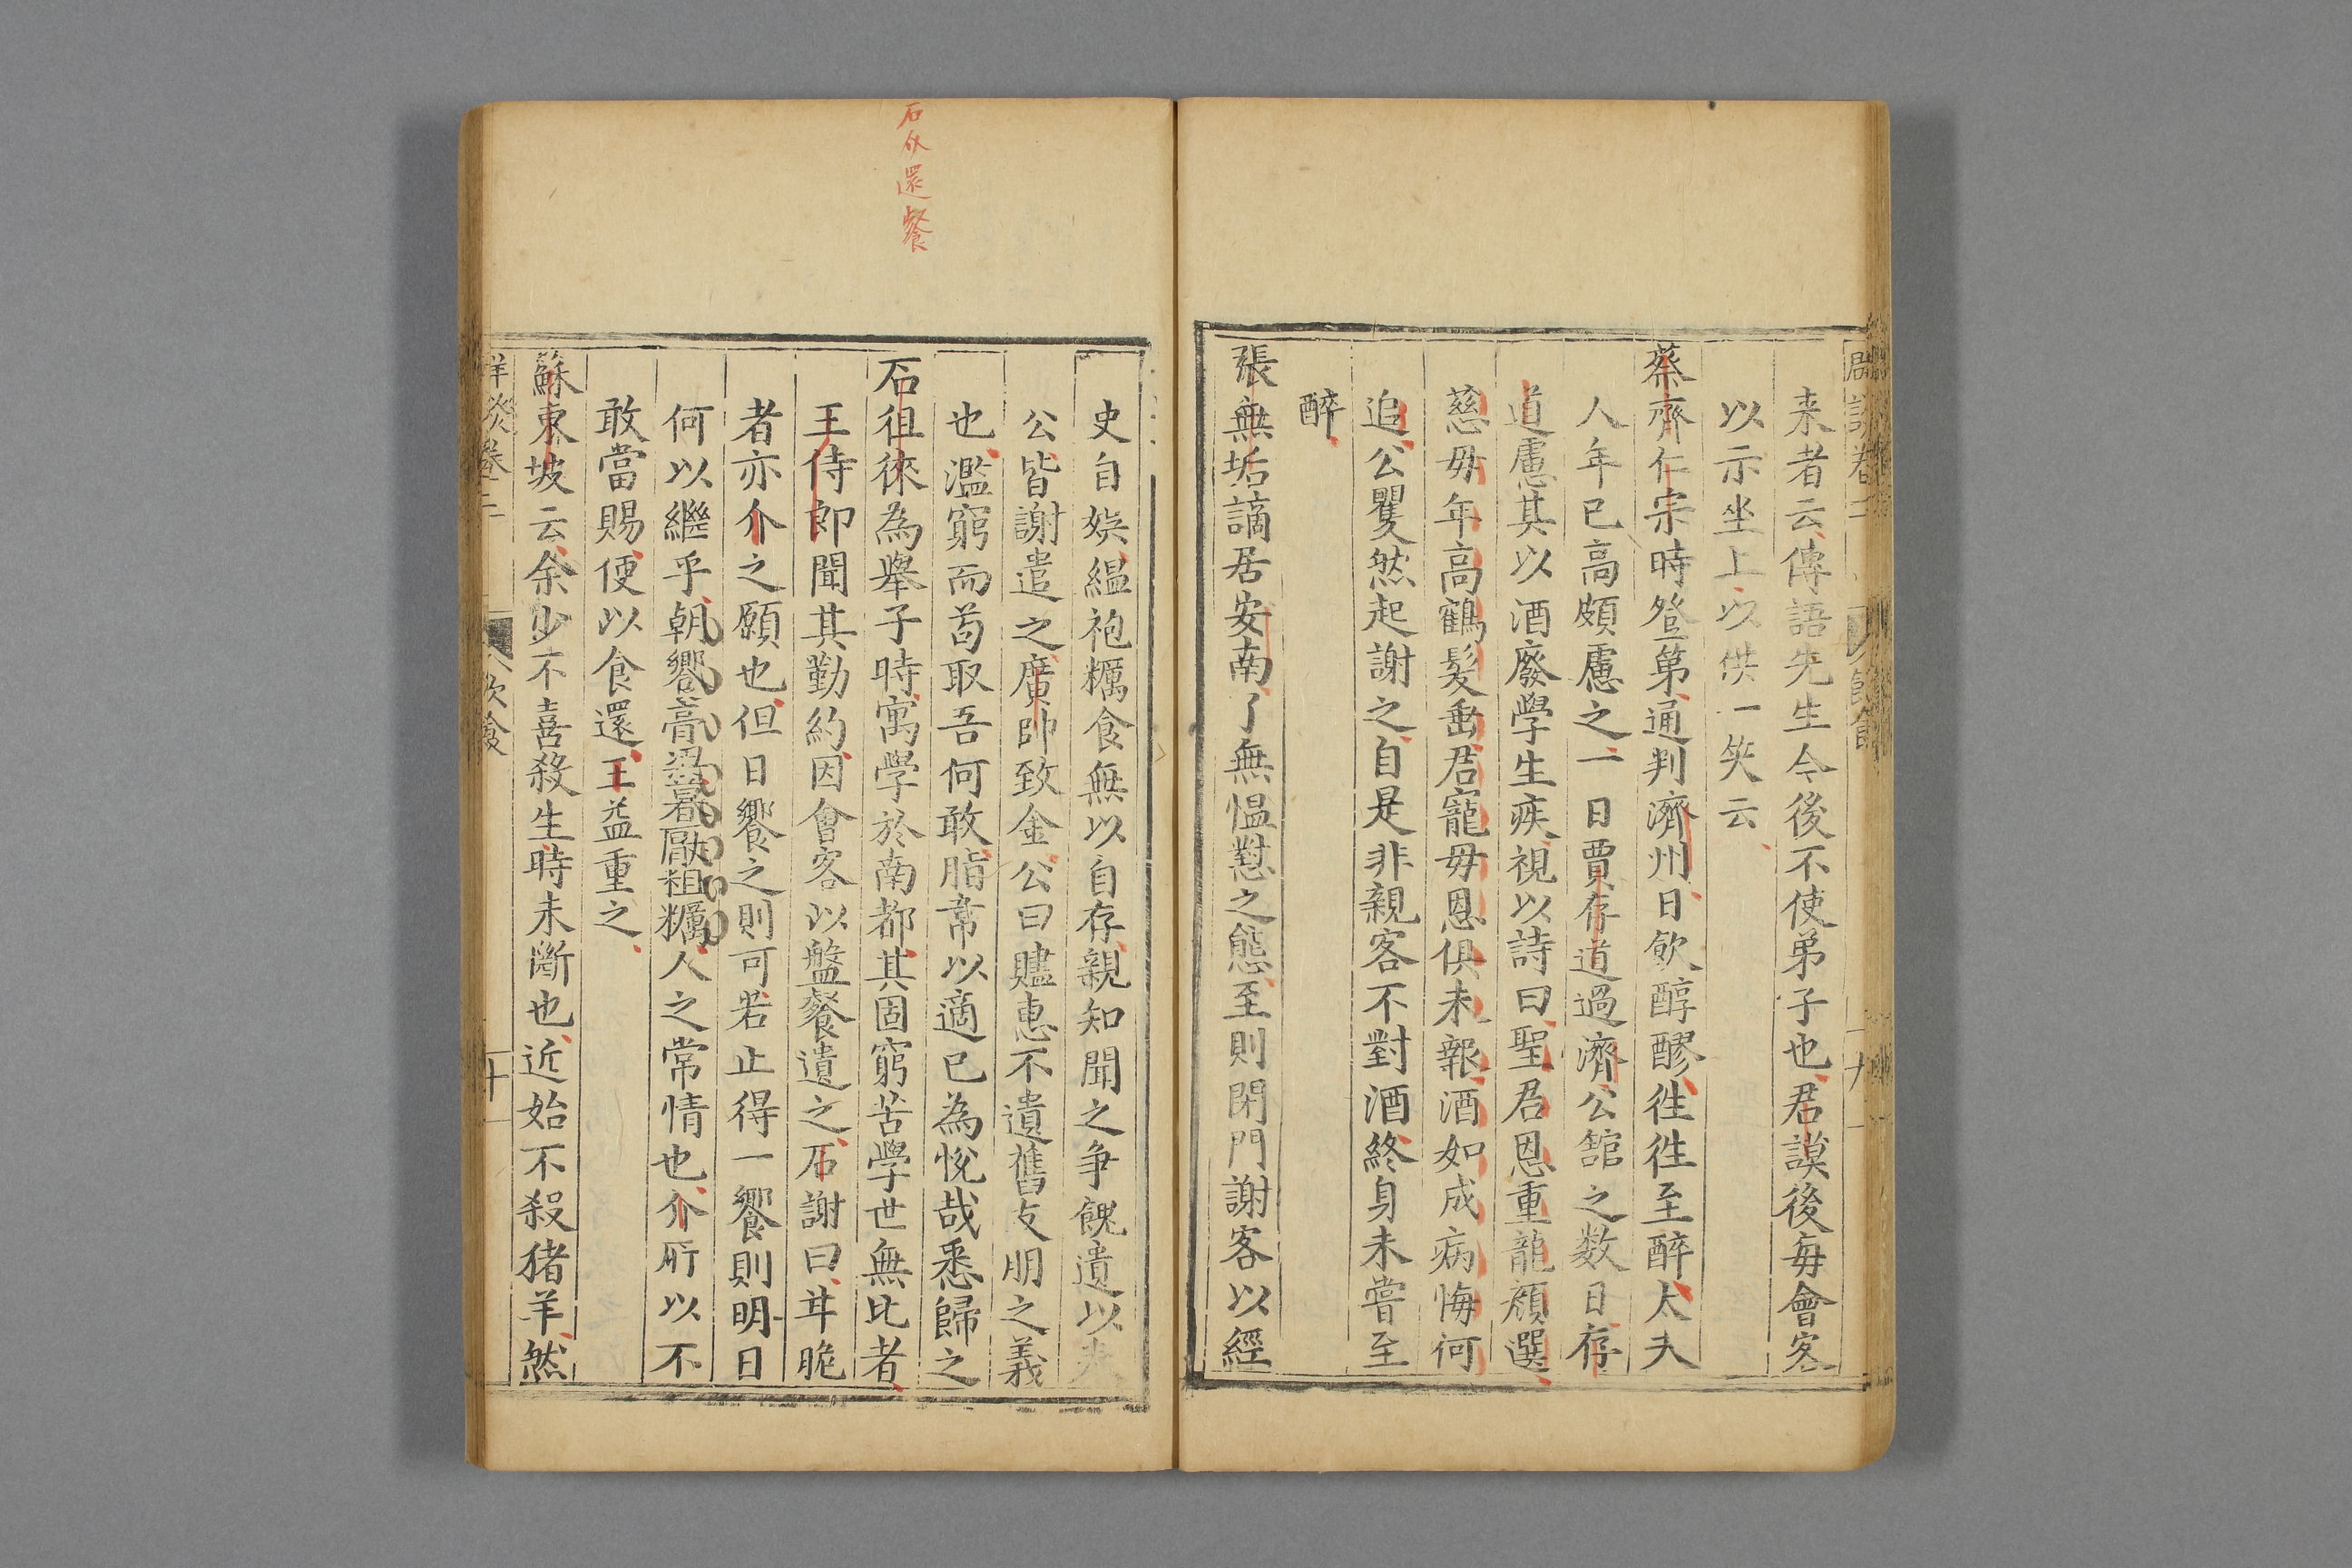 来者云傳語先生今後不使弟子也君謨後每會客
以示坐上以供一笑云
蔡齊仁宗時登第通判濟州日飲醇醪徃徃至醉太夫
人年已高頗慮之一日賈存道過濟公舘之数日存
道慮其以酒廢學生疾視以詩曰聖君恩重龍頭選
慈母年高鶴髮垂君寵母恩俱未報酒如成病悔何
追公瞿然起謝之自是非親客不對酒終身未嘗至
醉
張無垢謫居安南了無愠懟之態至則閉門謝客以經
石介還餐
史自娛緼袍糲食無以自存親知聞之争餽遺以
公皆謝遣之廣帥致金公曰贐惠不遺舊友朋之義
也濫窮而苟取吾何敢脂韋以適已為悅哉悉歸之
石徂徠為舉子時寓學於南都其固窮苦學世無比者
王侍郎聞其勤約因會客以盤餐遺之石謝曰甘脆
者亦介之願也但日饗之則可若止得一饗則明日
何以繼乎朝饗膏粱暮厭粗糲人之常情也介所以不
敢當賜便以食還王益重之
蘇東坡云余少不喜殺生時未斷也近始不殺猪羊然
卷二 飲食 十